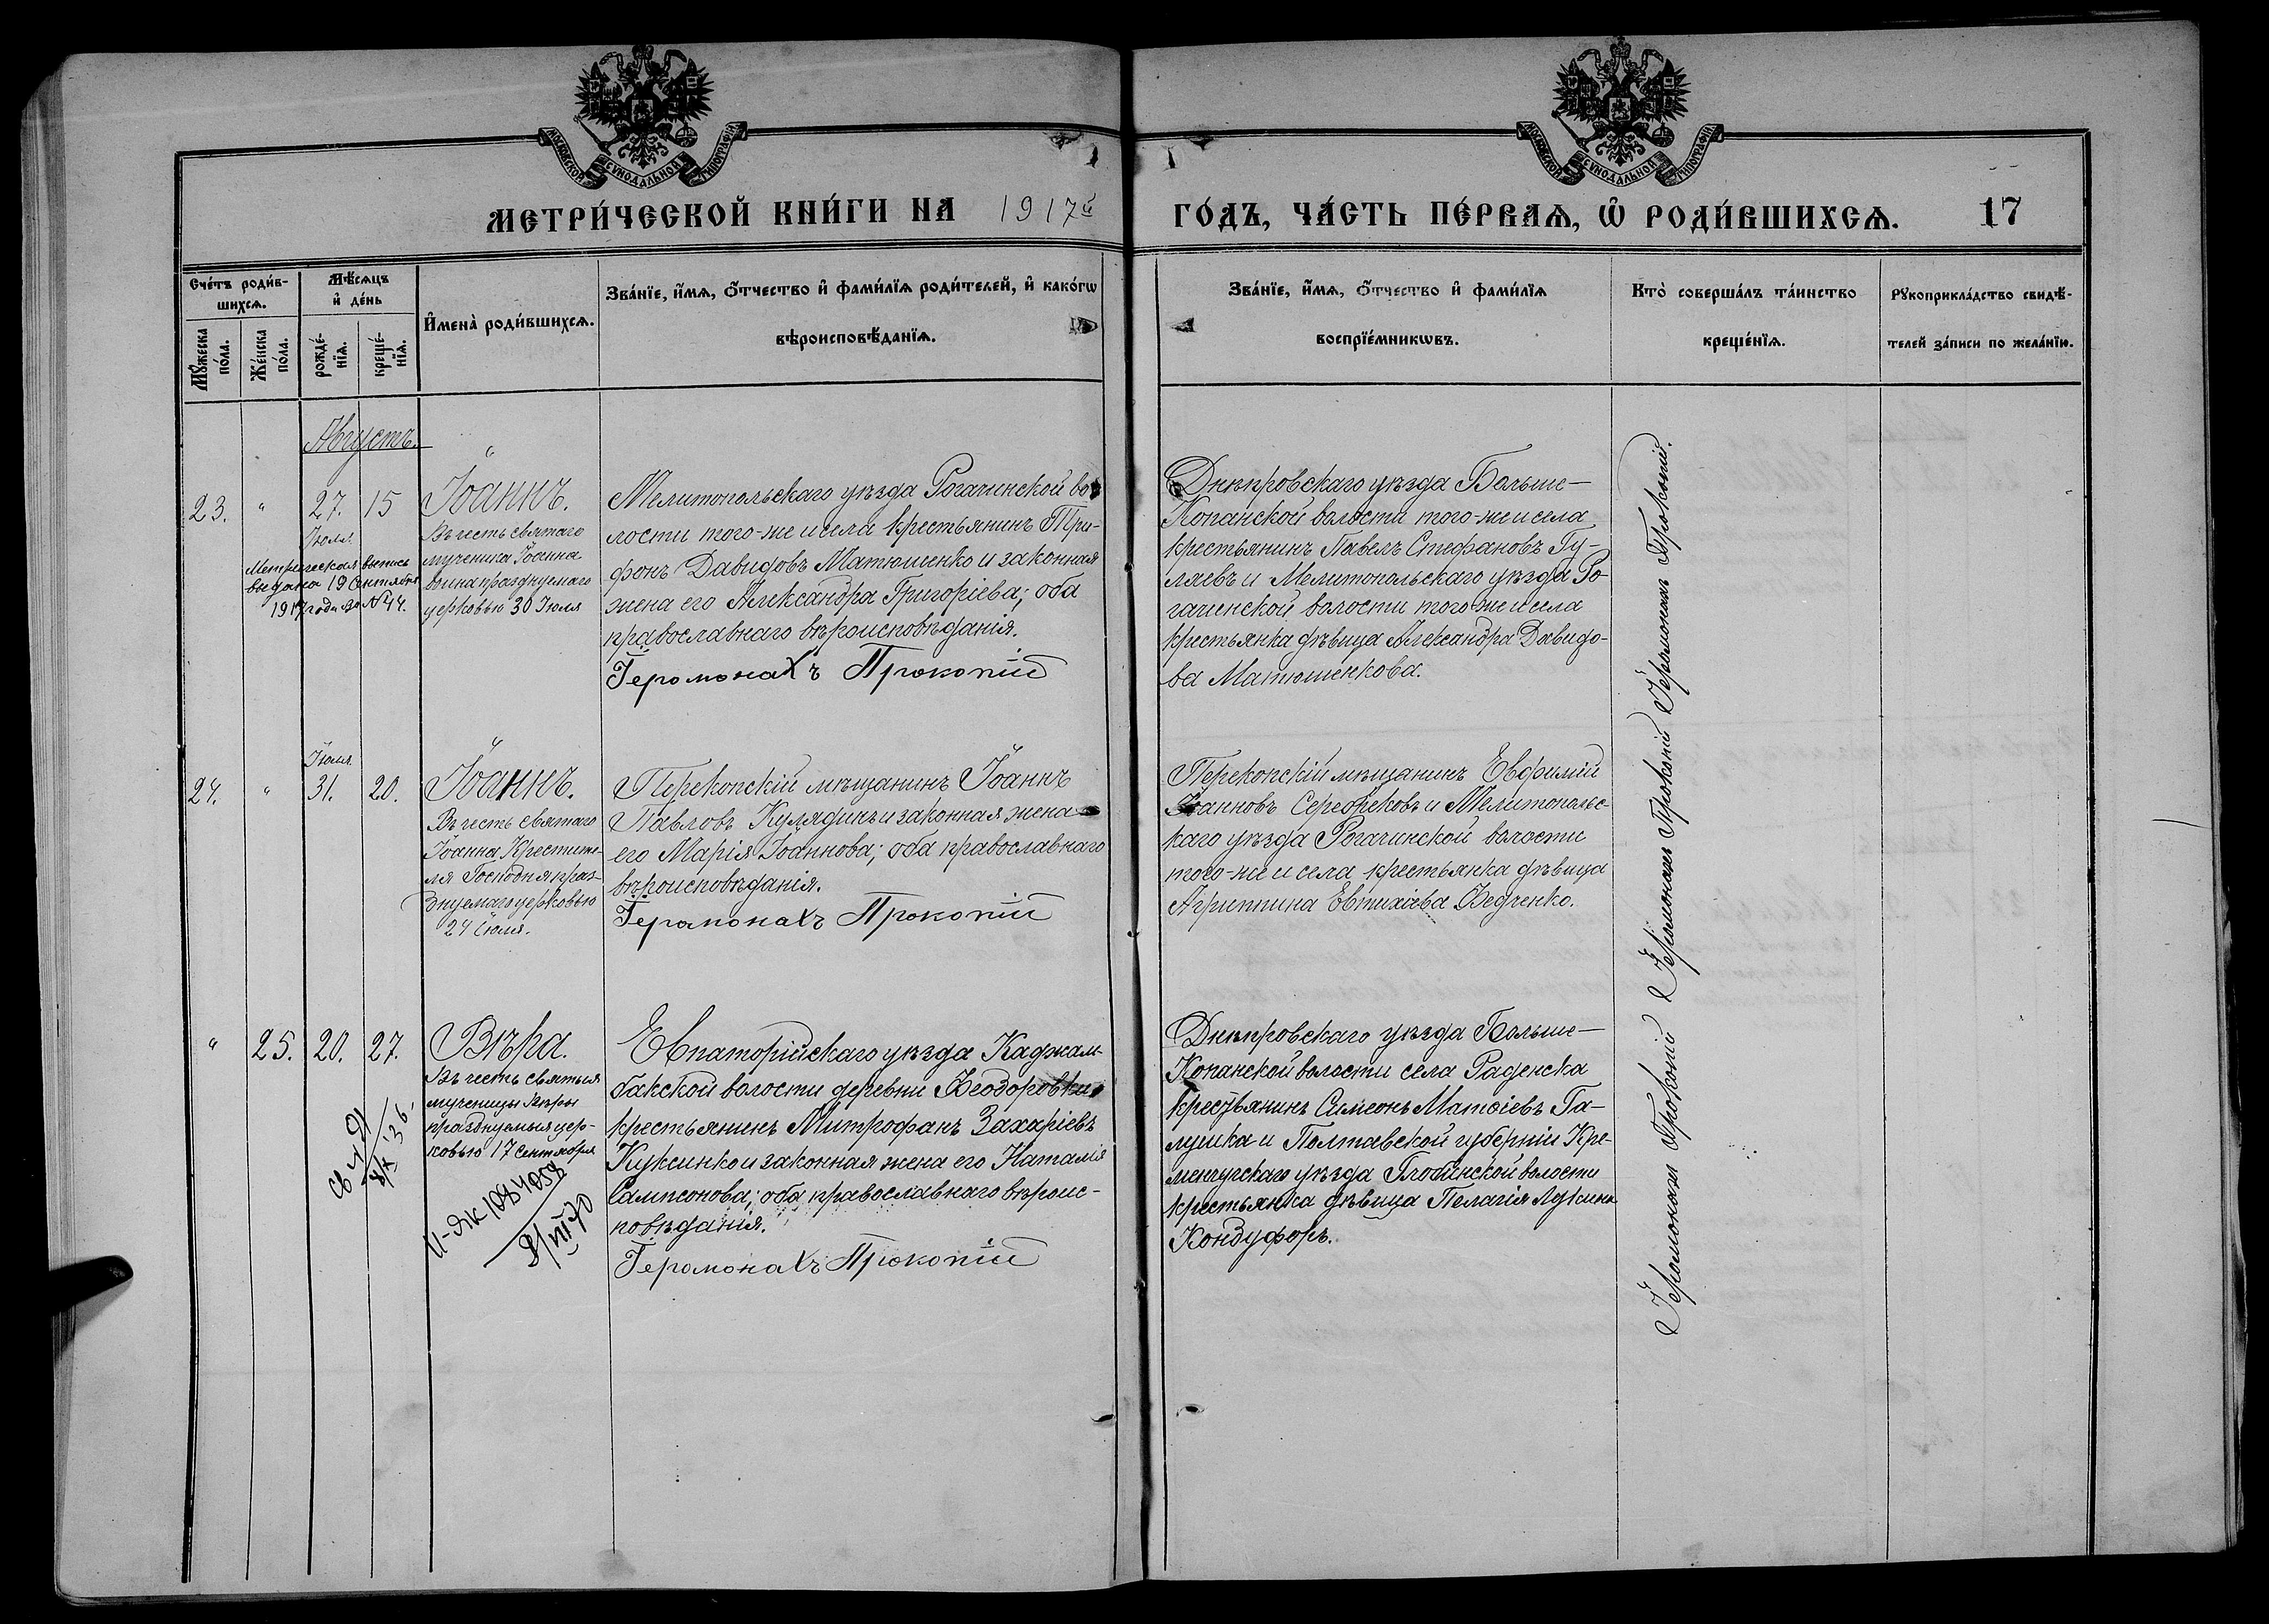 МОСКОВСКОЙ СѴНОДАЛЬНОЙ ТИПОГРАФІИ
МОСКОВСКОЙ СѴНОДАЛЬНОЙ ТИПОГРАФІИ
МЕТРИ́ЧЕСКОЙ КНИ́ГИ НА 1917й ГО́ДЪ, ЧА́СТЬ ПЕ́РВАѦ, Ѡ РОДИ́ВШИХСѦ. 17
Сче́тъ роди́в-
шихсѧ.
Мꙋ́жеска по́ла.
Же́нска по́ла.
Мѣ́сѧцъ
и де́нь
рожде́-
нїѧ.
креще́-
нїѧ.
И҆мена̀ роди́вшихсѧ.
Зва́нїе, и҆́мѧ, ѻ҆́тчество и҆ фами́лїѧ роди́телей, и҆ како́гѡ
вѣроисповѣ́данїѧ.
Зва́нїе, и҆́мѧ, ѻ҆́тчество и҆ фами́лїѧ
воспрїе́мникѡвъ.
Кто̀ соверша́лъ та́инство
креще́нїѧ.
Рꙋкоприкла́дство свидѣ́-
телей за́писи по жела́нїю.
Августъ.
23. " 27. 15
Іюля
Іоаннъ.
Въ честь святаго
мученика Іоанна
воина празднуемаго
церковью 30 Іюля
Метрическая выпись
выдана 19 Сентября
1917 года за № 44.
Мелитопольскаго уѣзда Рогачинской во-
лости того-же и села крестьянинъ Три-
фонъ Давидовъ Матюшенко и законная
жена его Александра Григоріева; оба
православнаго вѣроисповѣданія.
Іеромонахъ Прокопій
Днѣпровскаго уѣзда Больше-
Копанской волости того-же и села
крестьянинъ Павелъ Стефановъ Гу-
ляевъ и Мелитопольскаго уѣзда Ро-
гачинской волости того же и села
крестьянка дѣвица Александра Давидо-
ва Матюшенкова.
Іеромонахъ Прокопій.
Іюля
24. " 31. 20.
Іоаннъ.
Въ честь святаго
Іоанна Крестите-
ля Господня праз-
днуемаго церковью
24 Іюля.
Перекопскій мѣщанинъ Іоаннъ
Павловъ Кулядинъ и законная жена
его Марія Іоаннова; оба православнаго
вѣроисповѣданія.
Іеромонахъ Прокопій
Перекопскій мѣщанинъ Евфимій
Іоанновъ Серебрековъ и Мелитопольс-
каго уѣзда Рогачинской волости
того-же и села крестьянка дѣвица
Агриппина Евтихіева Федченко.
Іеромонахъ Прокопій
" 25. 20. 27.
Вѣра.
Въ честь святыя
мученицы Вѣры
празднуемыя цер-
ковью 17 Сентября
8/X 36.
8/VII 70
Евпаторійскаго уѣзда Каджам-
бакской волости деревни Ѳеодоровки
крестьянинъ Митрофанъ Захаріевъ
Куксинко и законная жена его Наталія
Сампсонова; оба православнаго вѣроис-
повѣданія.
Іеромонахъ Прокопій
Днѣпровскаго уѣзда Больше-
Копанской волости села Раденска
крестьянинъ Симеонъ Матѳіевъ Га-
лушка и Полтавской губерніи Кре-
менчугскаго уѣзда Глобинской волости
крестьянка дѣвица Пелагія Лукина
Кондуфоръ.
Іеромонахъ Прокопій